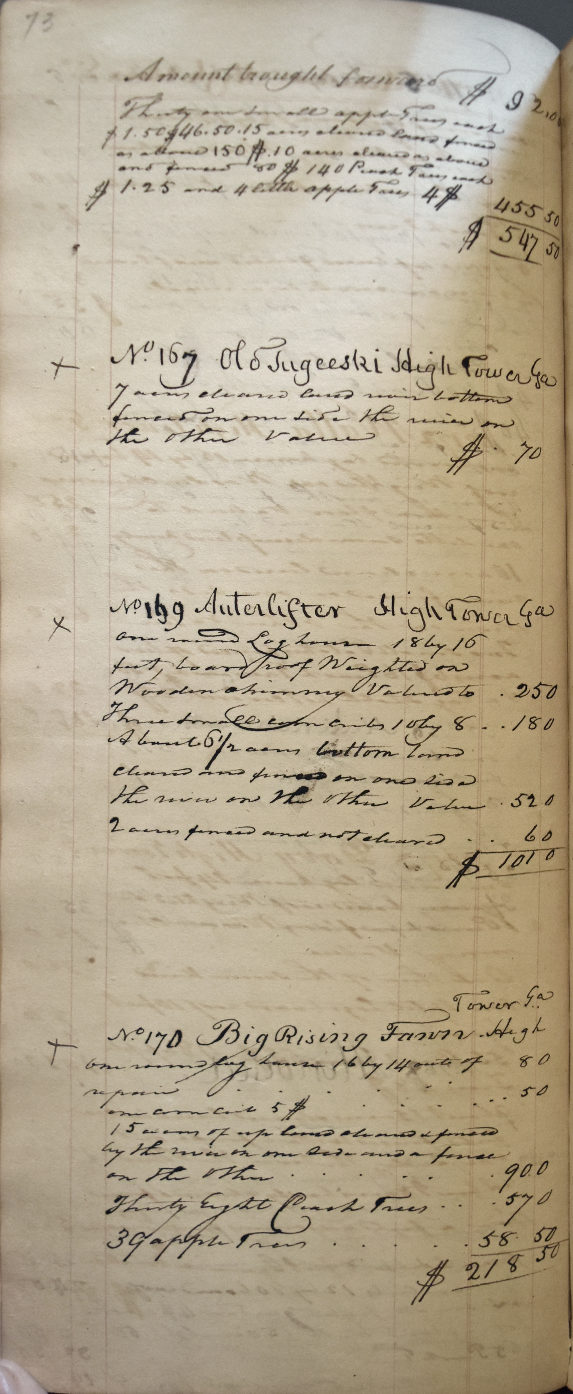 73
Amount brought forward $ 92.00
Thirty one small apple Trees each
$ 1.50 $46.50.15 acres cleared land fenced
as above 150 $.10 acres cleared as above
and fenced 50 $ 140 Peach Trees each
$ 1.25 and 4 little apple Trees 4 $ 455 50
$ 547 50
x No 167 Old Tugeeski High Tower Ga
7 acres cleared land river bottom
fenced on one side the river on
the other Value $ . 70
x No 169 Auterlifter High Tower Ga
one round Log house 18 by 16
feet, board roof Weighted on
Wooden chimney Valued to . 25 0
Three small corn cribs 10 by 8 . . 18 0
About 6 1/2 acres bottom land
cleared and fenced on one side
the river on the other Value . 52 0
2 acres fenced and not cleared . . 6 0
$ 101 0
Tower Ga
x No 170 Big Rising Fawn High
one round log house 16 by 14 out of 8 0
repair . . . . . 5 0
one corn crib 5 $ . . . .
15 acres of up land cleared & fenced
by the river on one side and a fence
on the other . . . . 90 0
Thirty Eight Peach Trees . . . 57 0
39 apple Trees . . . . 58 50
$ 218 50